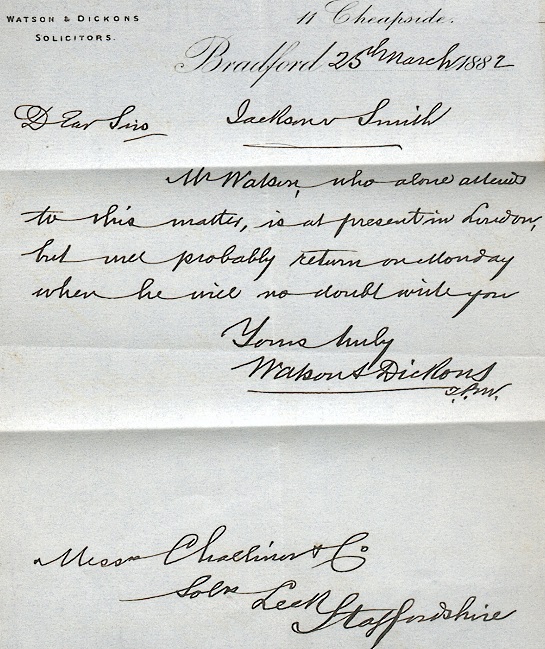 WATSON & DICKONS
SOLICITORS.
11 Cheapside.
Bradford 25th March 1882
Dear Sirs
Jackson v Smith
Mr Watson, who alone attends
to this matter, is at present in London,
but will probably return on Monday
when he will no doubt write you
Yours truly
Watson & Dickons
Messrs Challinor & Co
Solrs Leek
Staffordshire